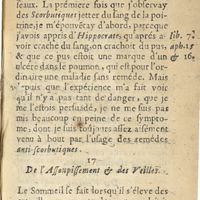 seaux. La premiere fois que j'observay
des Scorbutiques jetter du sang de la poi-
trine, je m'épouvétay d'abord, parceque
j'avois appris d'Hippocrate, qu'aprés a-
voir craché du sang, on crachoit du pus,
& que ce pus estoit une marque d'un
ulcére dans le poumon, qui est pour l'or-
dinaire une maladie sans reméde. Mais
depuis que l'expérience m'a fait voir
qu'il n'y a pas tant de danger, que je
me l'estois persuadé, je ne me suis pas
mis beaucoup en peine de ce sympto-
me, dont je suis toûjours assez aisément
venu à bout par l'usage des remédes
anti-scorbutiques.
lib. 7.
aph. 15
& 16.
17
De l'Assoupissement & des Veilles.
Le Sommeil se fait lorsqu'il s'éleve des